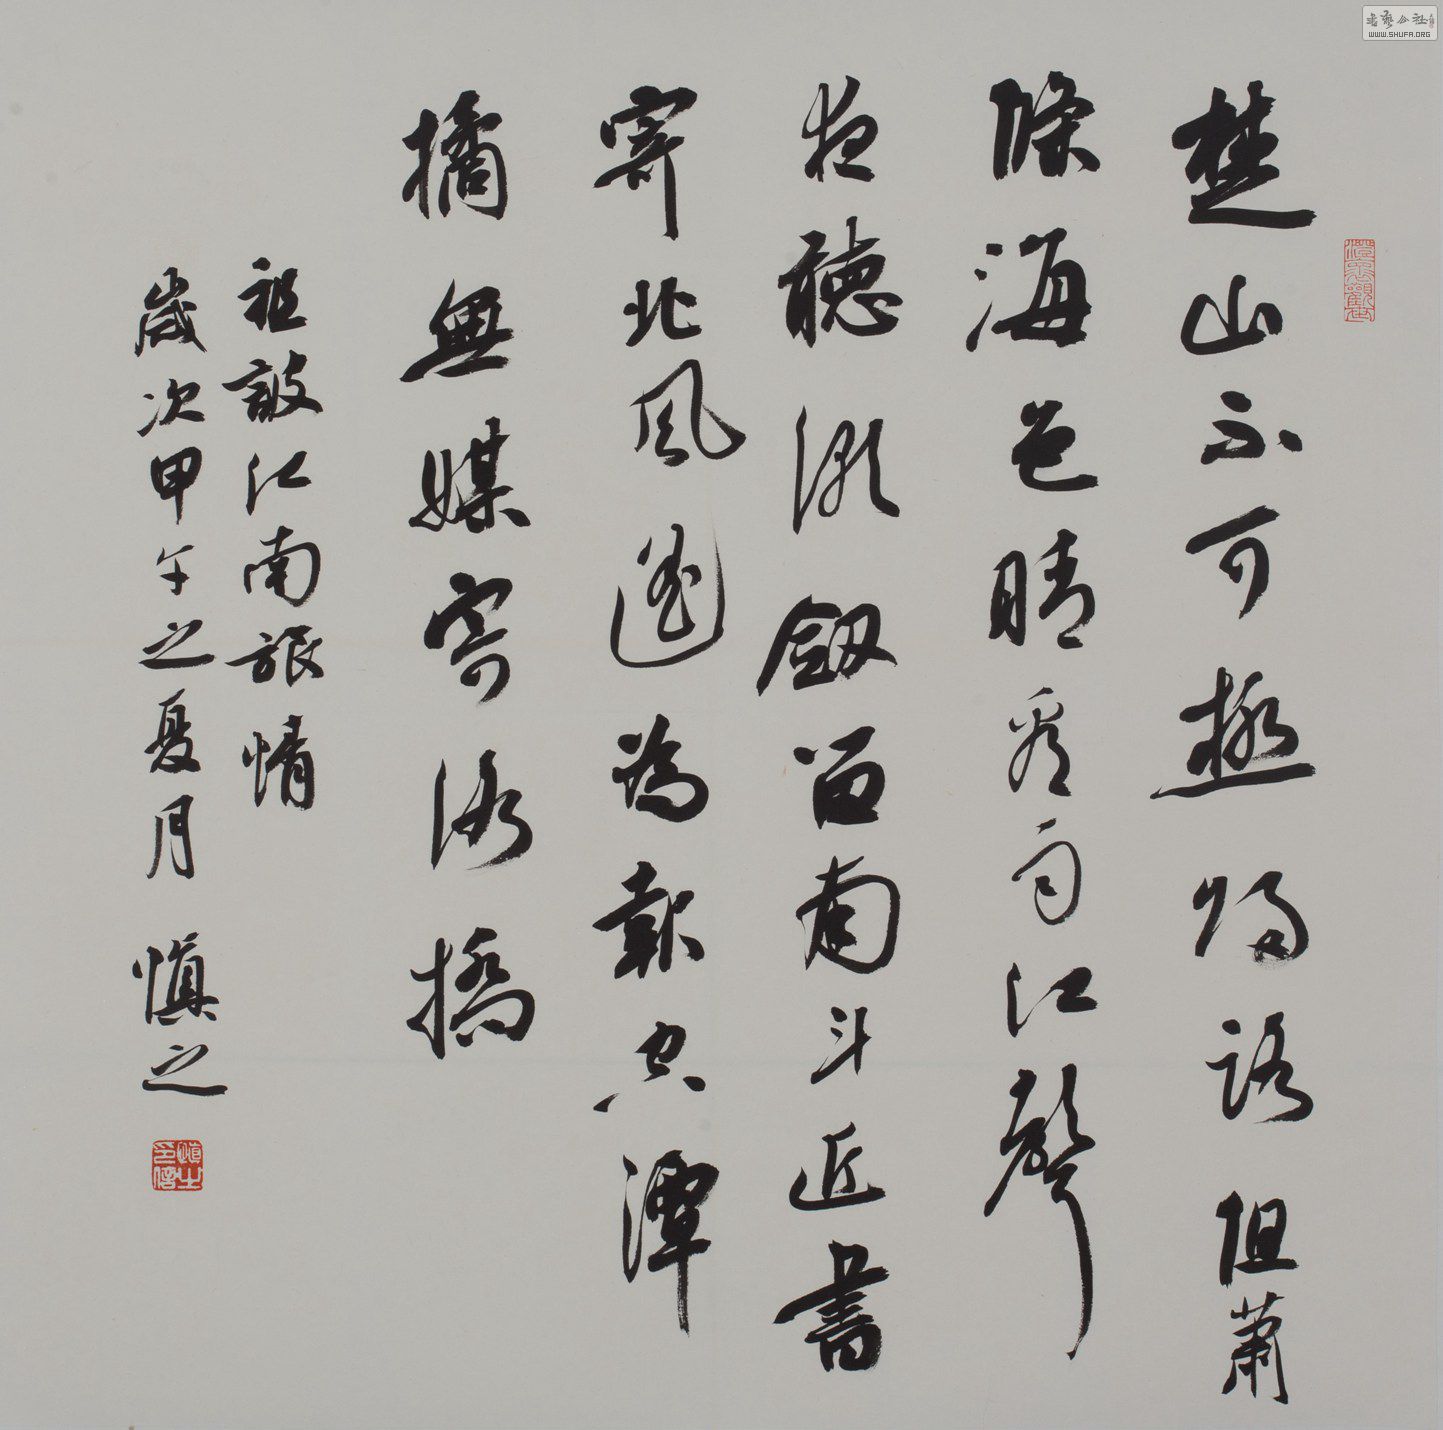 楚山不可極歸路但蕭
條海色晴看雨江聲
夜聽潮劍留南斗近書
寄北風遙為報空潭
橘無媒寄洛橋
祖詖江南旅情
歲次甲午之夏月 慎之
慎之印信
書藝公社
WWW.SHUFA.ORG